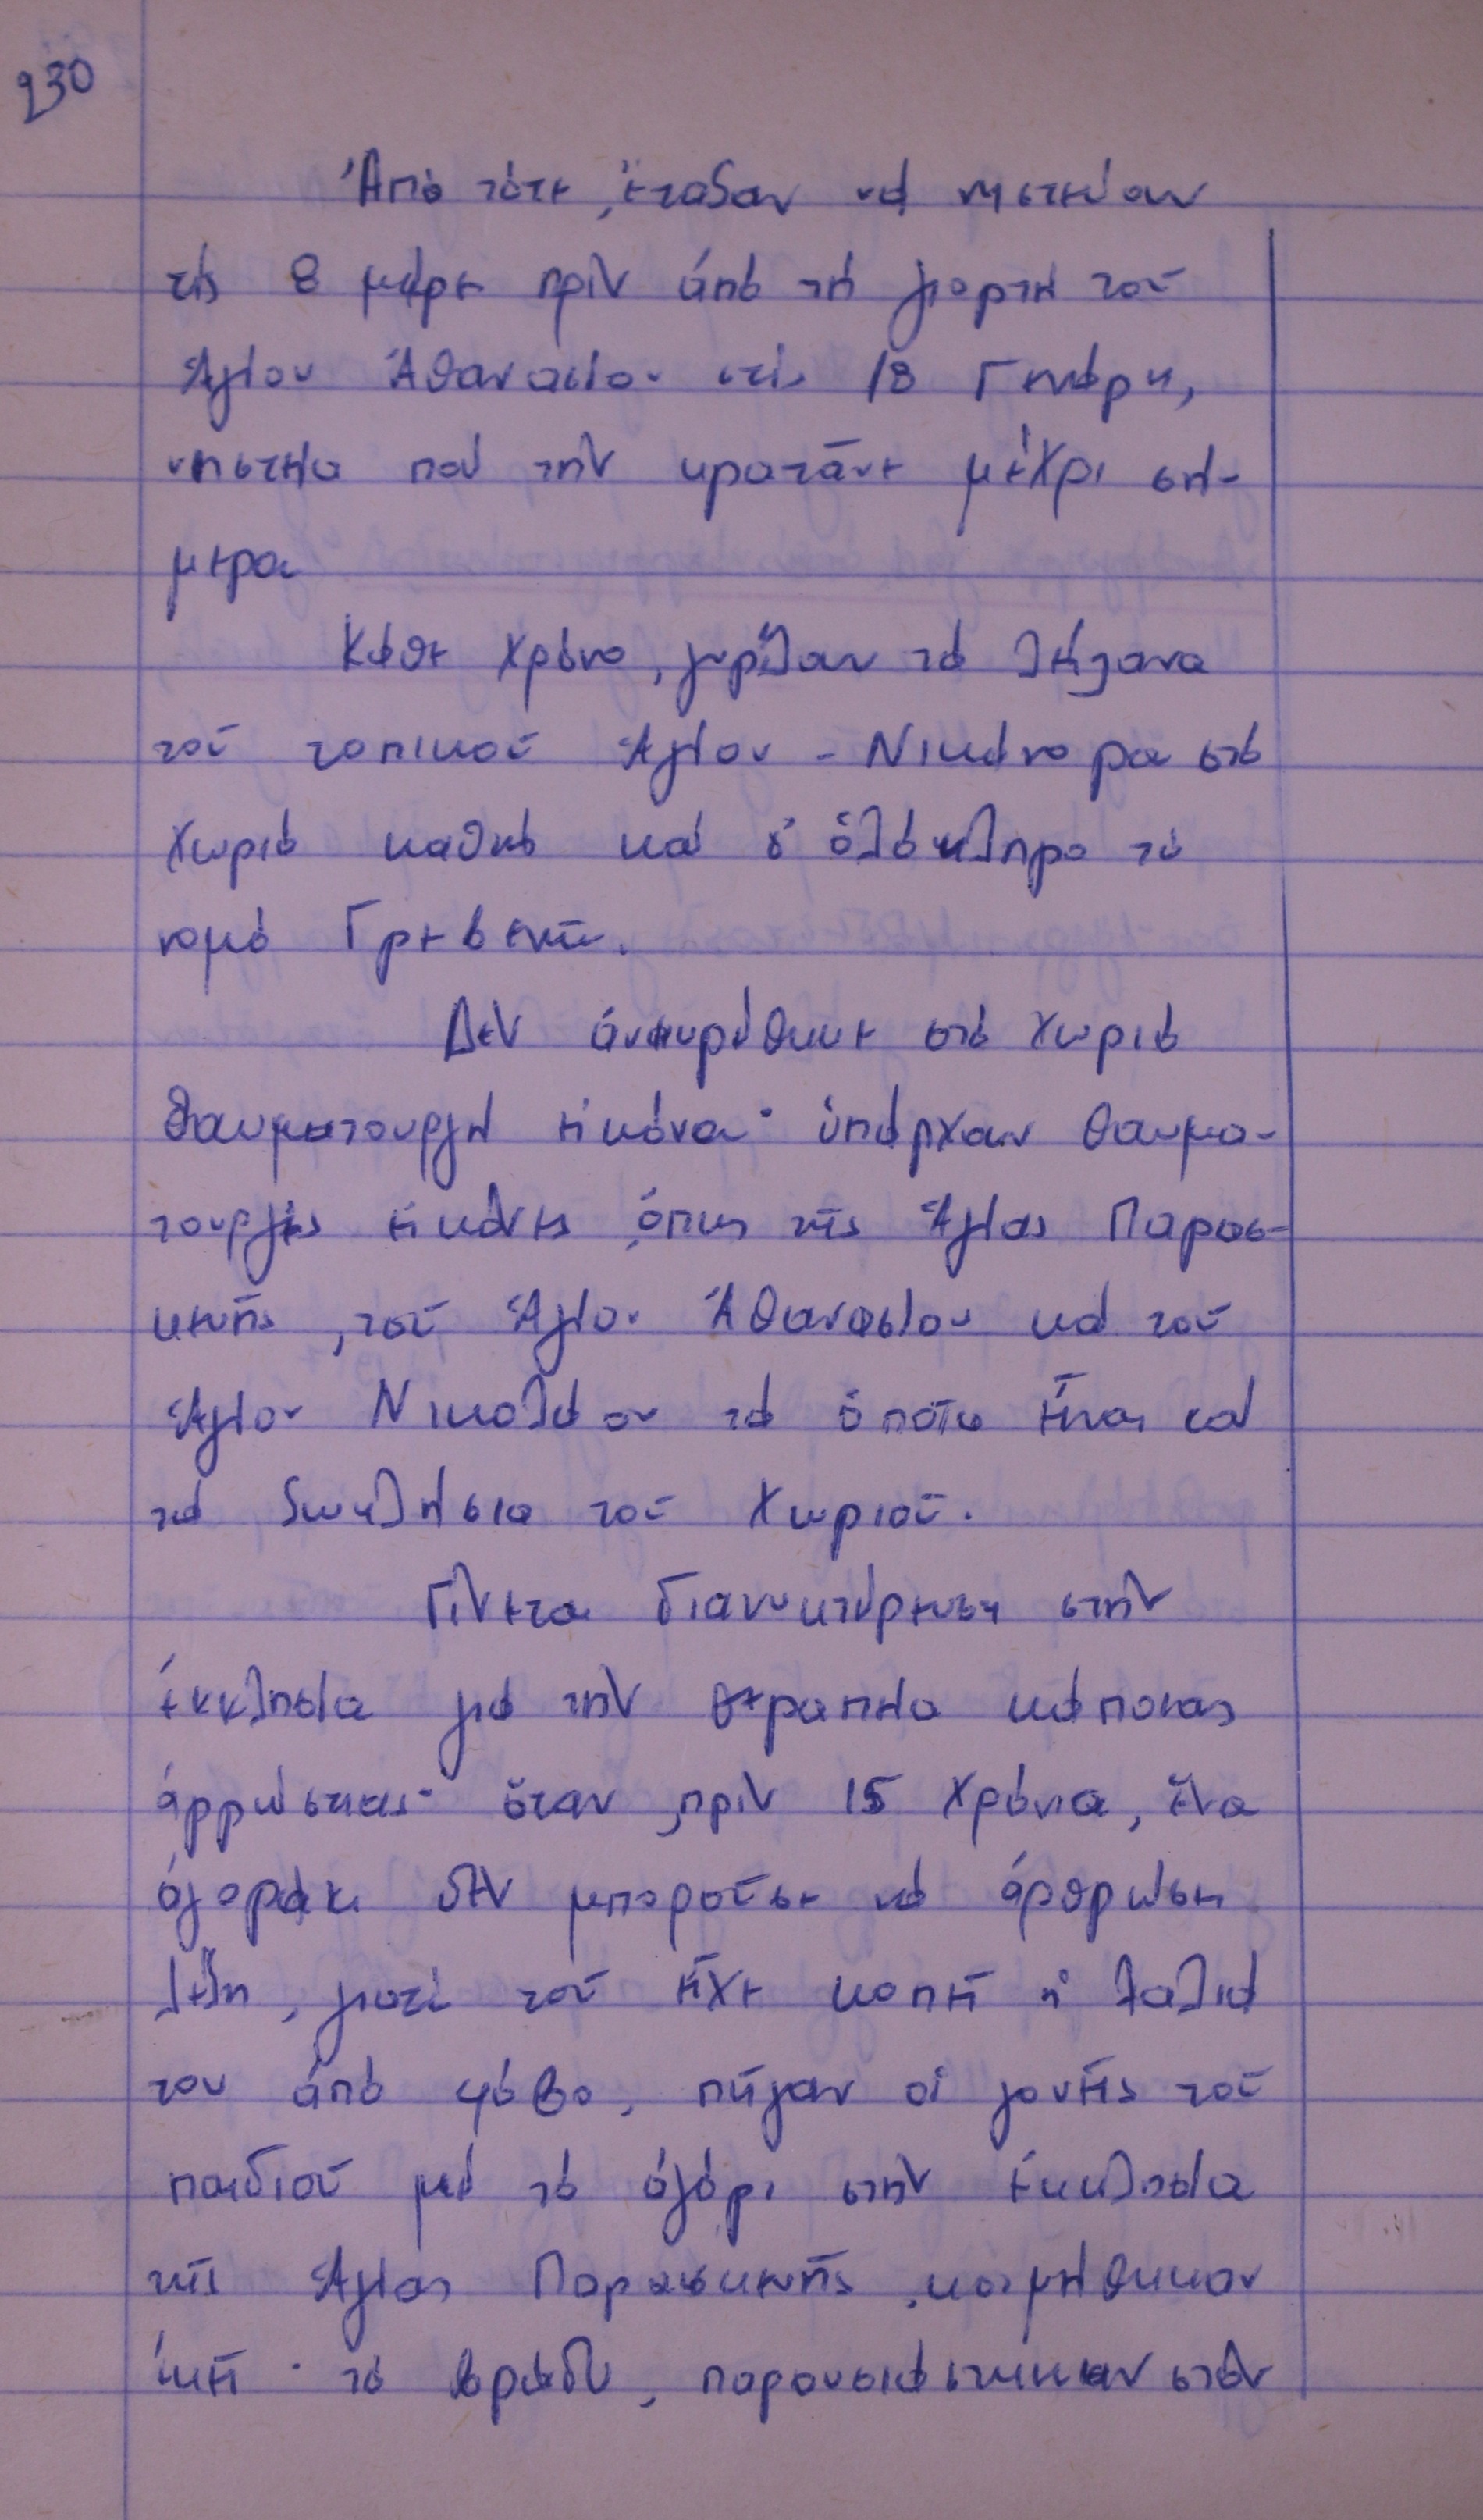 230
Ἀπό τότε, ἔταξαν νά νηστεύουν
τίς 8 μέρες πρίν ἀπό τή γιορτή τοῦ
Ἁγίου Ἀθανασίου στίς 18 Γενάρη,
νηστεία πού τήν κρατᾶνε μέχρι σή-
μερα
Κάθε χρόνο, γυρίζαν τά λείψανα
τοῦ τοπικοῦ Ἁγίου - Νικάνορα στό
χωριό καθώς καί σ' ὁλόκληρο τό
νομό Γρεβενῶν.
Δέν ἀνευρέθηκε στό χωριό
θαυματουργή εἰκόνα· ὑπάρχουν θαυμα-
τουργές εἰκόνες, ὅπως τῆς Ἁγίας Παρασ-
κευῆς, τοῦ Ἁγίου Ἀθανασίου καί τοῦ
Ἁγίου Νικολάου τά ὁποῖα εἶναι καί
τά ξωκλήσια τοῦ χωριοῦ.
Γίνεται διανυκτέρευση στήν
ἐκκλησία γιά τήν θεραπεία κάποιας
ἀρρώστιας· ὅταν, πρίν 15 χρόνια, ἕνα
ἀγοράκι δέν μποροῦσε νά ἀρθρώσει
λέξη, γιατί τοῦ εἶχε κοπεῖ ἡ λαλιά
του ἀπό φόβο, πῆγαν οἱ γονεῖς τοῦ
παιδιοῦ μέ τό ἀγόρι στήν ἐκκλησία
τῆς Ἁγίας Παρασκευῆς, κοιμήθηκαν
ἐκεῖ· τό βράδυ, παρουσιάστηκαν στόν